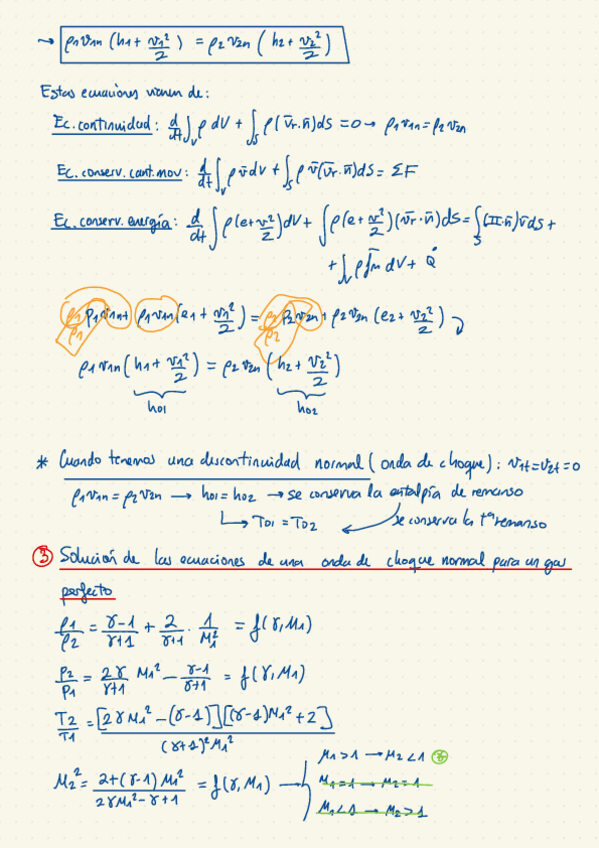 → ρ1v1n (h1 + v1²/2) = ρ2v2n (h2 + v2²/2)
Estas ecuaciones vienen de:
Ec. continuidad: d/dt ∫v ρ dV + ∫s ρ(v̄r·n̄)dS = 0 → ρ1v1n = ρ2v2n
Ec. conserv. cant. mov: d/dt ∫v ρv̄ dV + ∫s ρv̄(v̄r·n̄)dS = ΣF
Ec. conserv. energía: d/dt ∫ ρ(e+v²/2)dV + ∫ ρ(e+v²/2)(v̄r·n̄)dS = ∫s (II·n̄)v̄dS +
+ ∫v ρf̄m dV + Q̇
ρ1/ρ1 p1v1n + ρ1v1n(e1 + v1²/2) = ρ2/ρ2 p2v2n + ρ2v2n(e2 + v2²/2)
ρ1v1n(h1 + v1²/2) = ρ2v2n(h2 + v2²/2)
h01 h02
* Cuando tenemos una descontinuidad normal (onda de choque): v1t=v2t=0
ρ1v1n = ρ2v2n → h01 = h02 → se conserva la entalpía de remanso
↳ T01 = T02 se conserva la tª remanso
③ Solución de las ecuaciones de una onda de choque normal para un gas
perfecto
ρ1/ρ2 = γ-1/γ+1 + 2/γ+1 · 1/M1² = f(γ,M1)
P2/P1 = 2γ/γ+1 M1² - γ-1/γ+1 = f(γ,M1)
T2/T1 = [2γM1² - (γ-1)][(γ-1)M1² + 2] / (γ+1)²M1²
M2² = 2+(γ-1)M1² / 2γM1² - γ+1 = f(γ,M1) →
M1>1 → M2<1 *
M1=1 → M2=1
M1<1 → M2>1